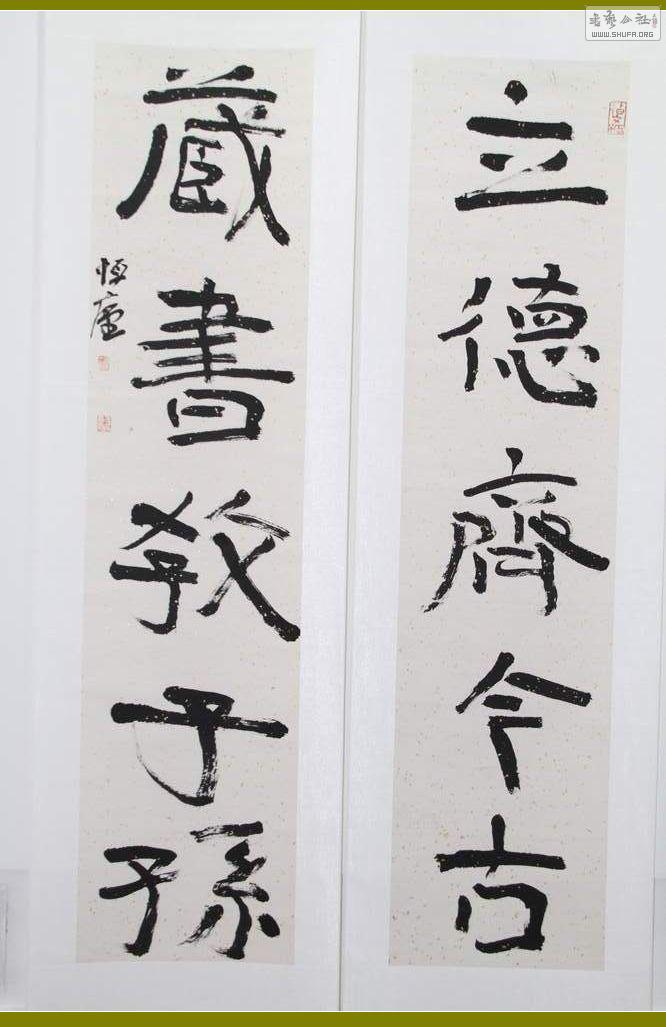 立德齊今古
藏書教子孫
恒廬
书艺公社
WWW.SHUFA.ORG